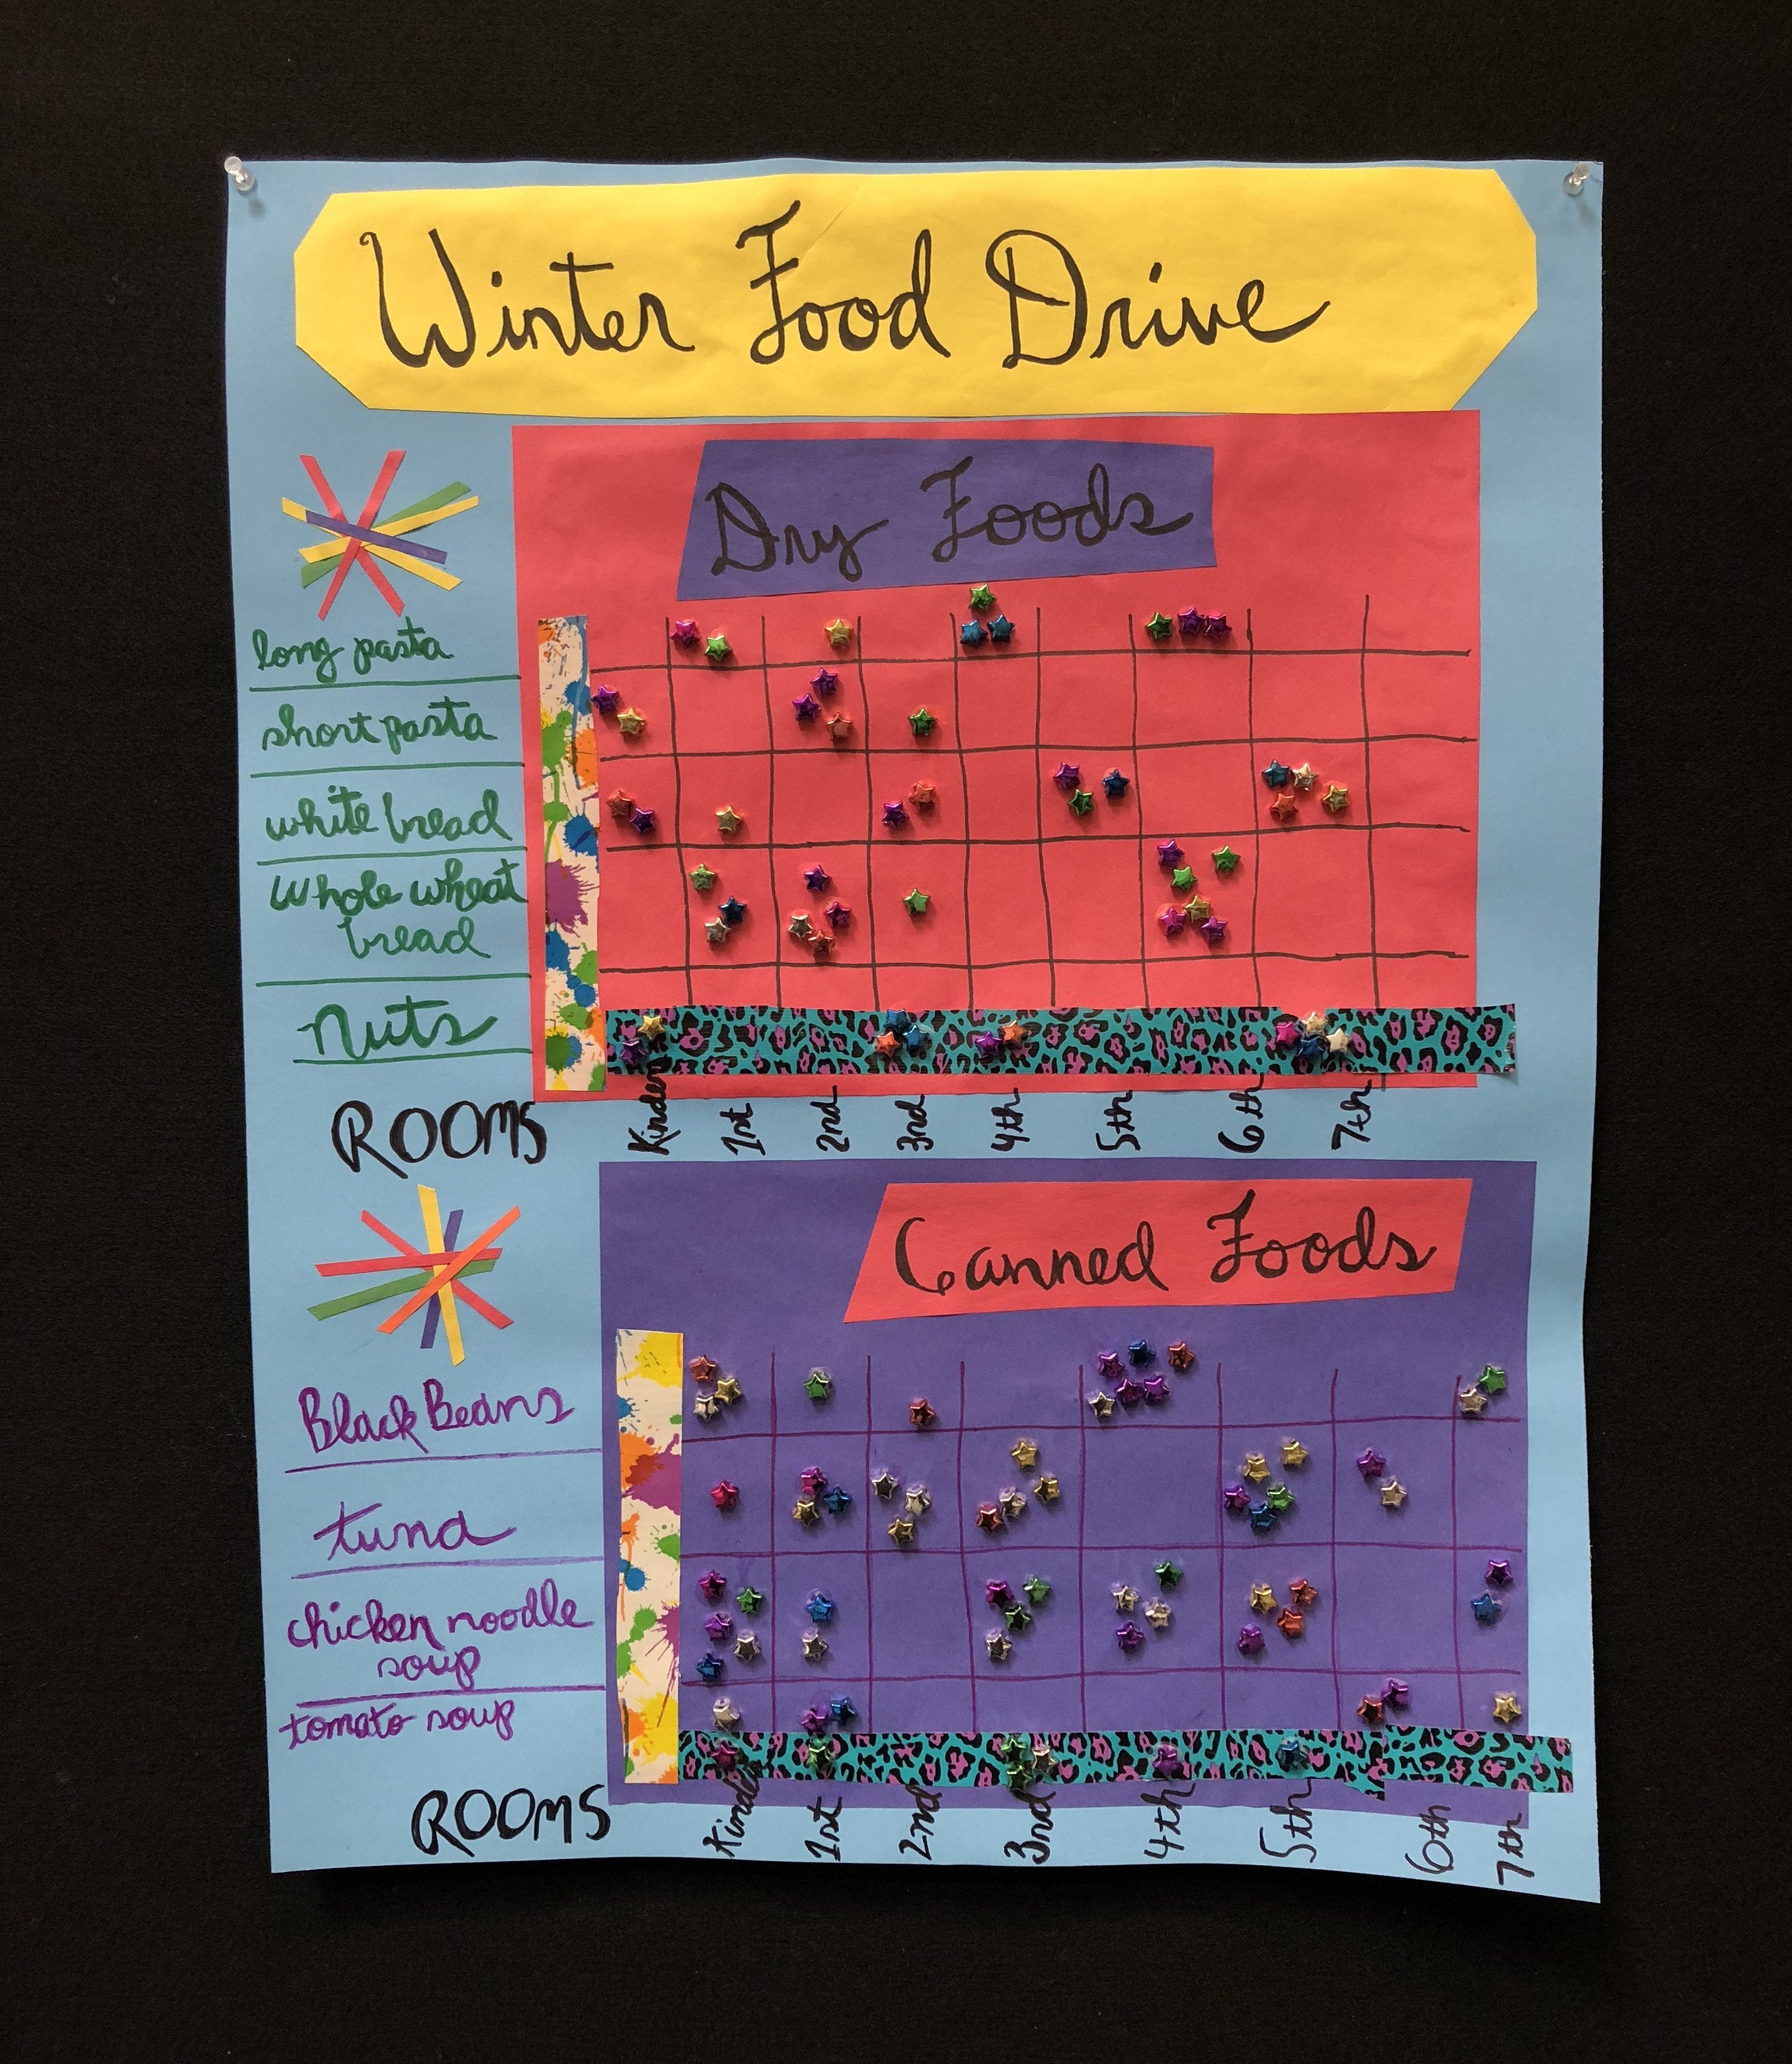 Winter Food Drive
Dry Foods
long pasta
short pasta
white bread
Whole wheat
bread
nuts
ROOMS
Kinder 1st 2nd 3rd 4th 5th 6th 7th
Canned Foods
Black Beans
tuna
chicken noodle
soup
tomato soup
ROOMS
Kinder 1st 2nd 3rd 4th 5th 6th 7th